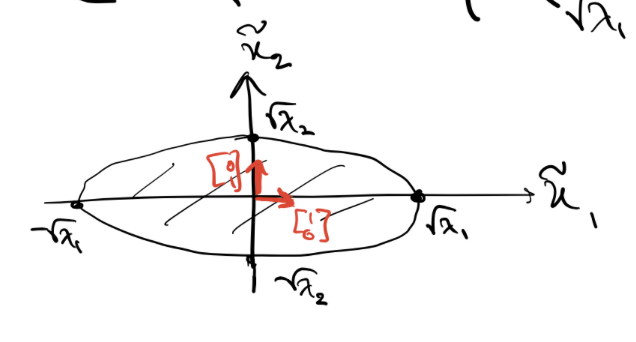 √λ₁
x̃₂
√λ₂
[0 1]
x̃₁
-√λ₁
[1 0]
√λ₁
-√λ₂